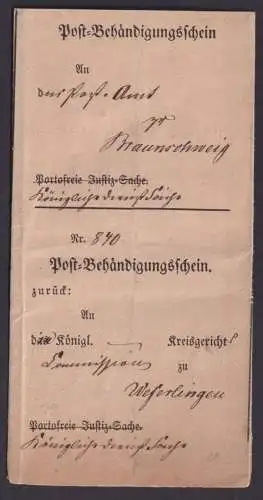 Post-Behändigungsschein
An
das Post-Amt
zu
Braunschweig
Portofreie Justiz-Sache.
Königliche Dienst Sache
Nr. 840
Post-Behändigungsschein.
zurück:
An
die Königl. Kreisgerichts
Commission zu
Weferlingen
Portofreie Justiz-Sache.
Königliche Dienst Sache